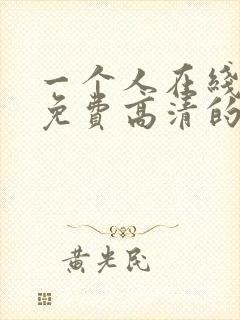 一个人在线
免费高清的
黄光民